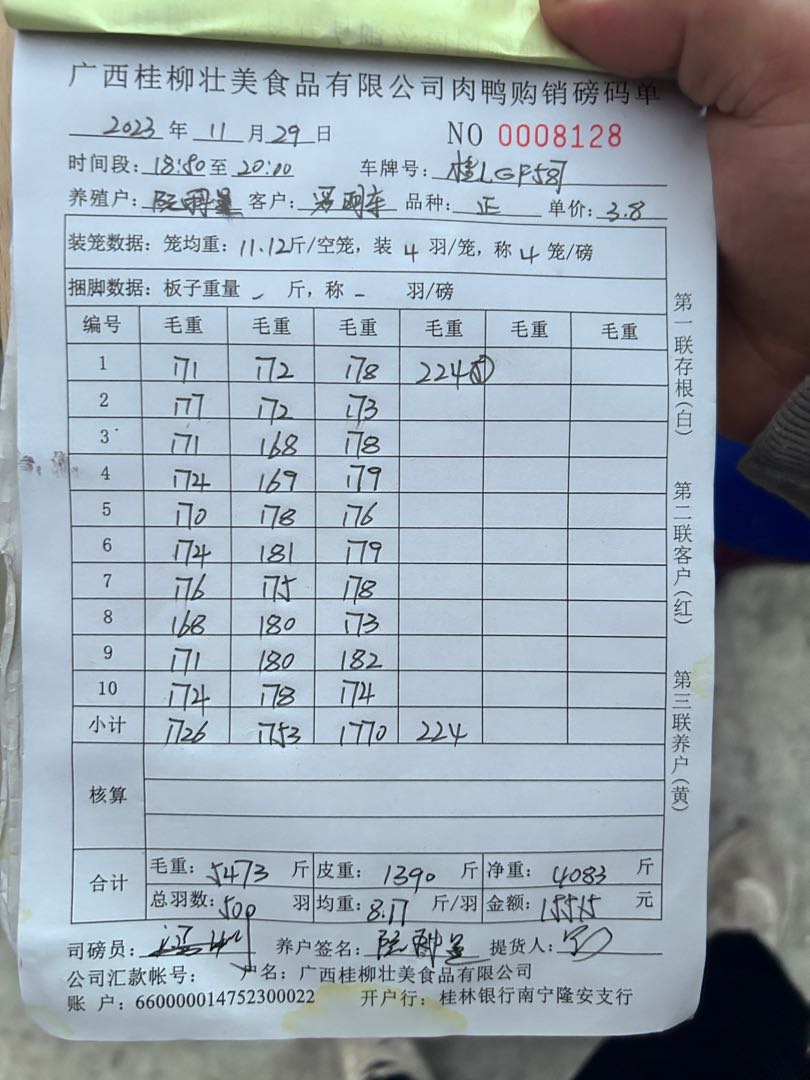 广西桂柳壮美食品有限公司肉鸭购销磅码单
2023 年 11 月 29 日 NO 0008128
时间段: 18:50 至 20:00 车牌号: 桂LGF587
养殖户: 客户: 品种: 正 单价: 3.8
装笼数据: 笼均重: 11.12斤/空笼, 装 4 羽/笼, 称 4 笼/磅
捆脚数据: 板子重量 - 斤, 称 - 羽/磅
编号 毛重 毛重 毛重 毛重 毛重 毛重
1 171 172 178 224⑤
2 177 172 173
3 171 168 178
4 174 169 179
5 170 178 176
6 174 181 179
7 176 175 178
8 168 180 173
9 171 180 182
10 174 178 174
小计 1726 1753 1770 224
核算
合计 毛重: 5473 斤 皮重: 1390 斤 净重: 4083 斤
总羽数: 500 羽 均重: 8.17 斤/羽 金额: 15515 元
司磅员: 养户签名: 提货人:
公司汇款帐号: 户名: 广西桂柳壮美食品有限公司
账 户: 660000014752300022 开户行: 桂林银行南宁隆安支行
第一联存根(白) 第二联客户(红) 第三联养户(黄)